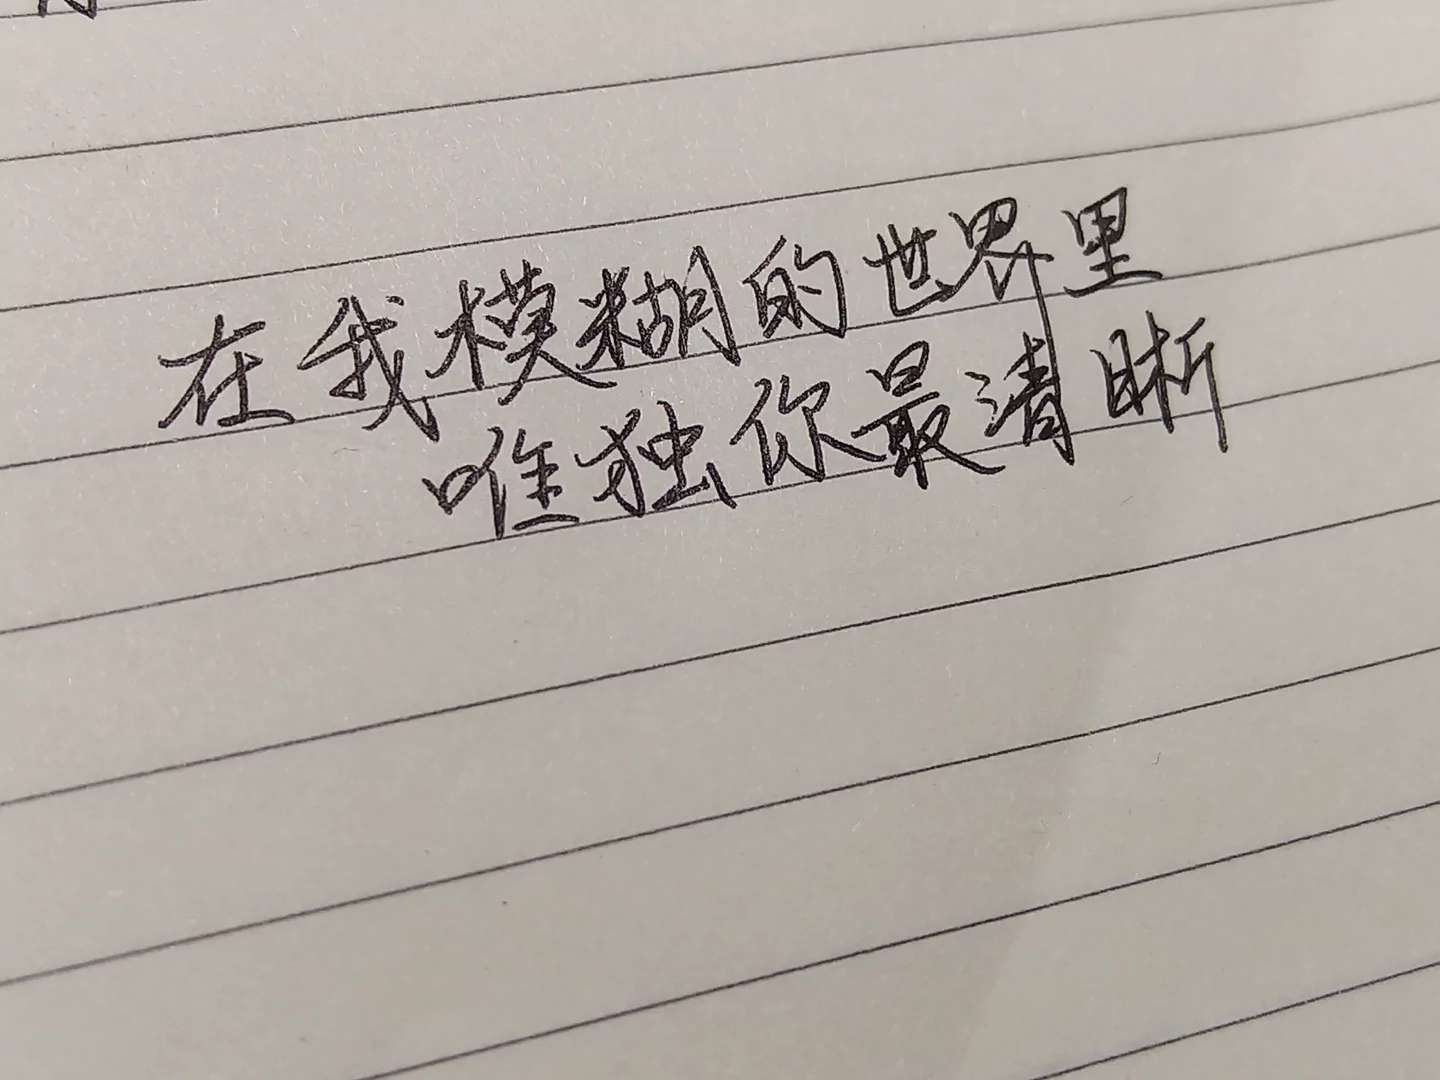 在我模糊的世界里
唯独你最清晰